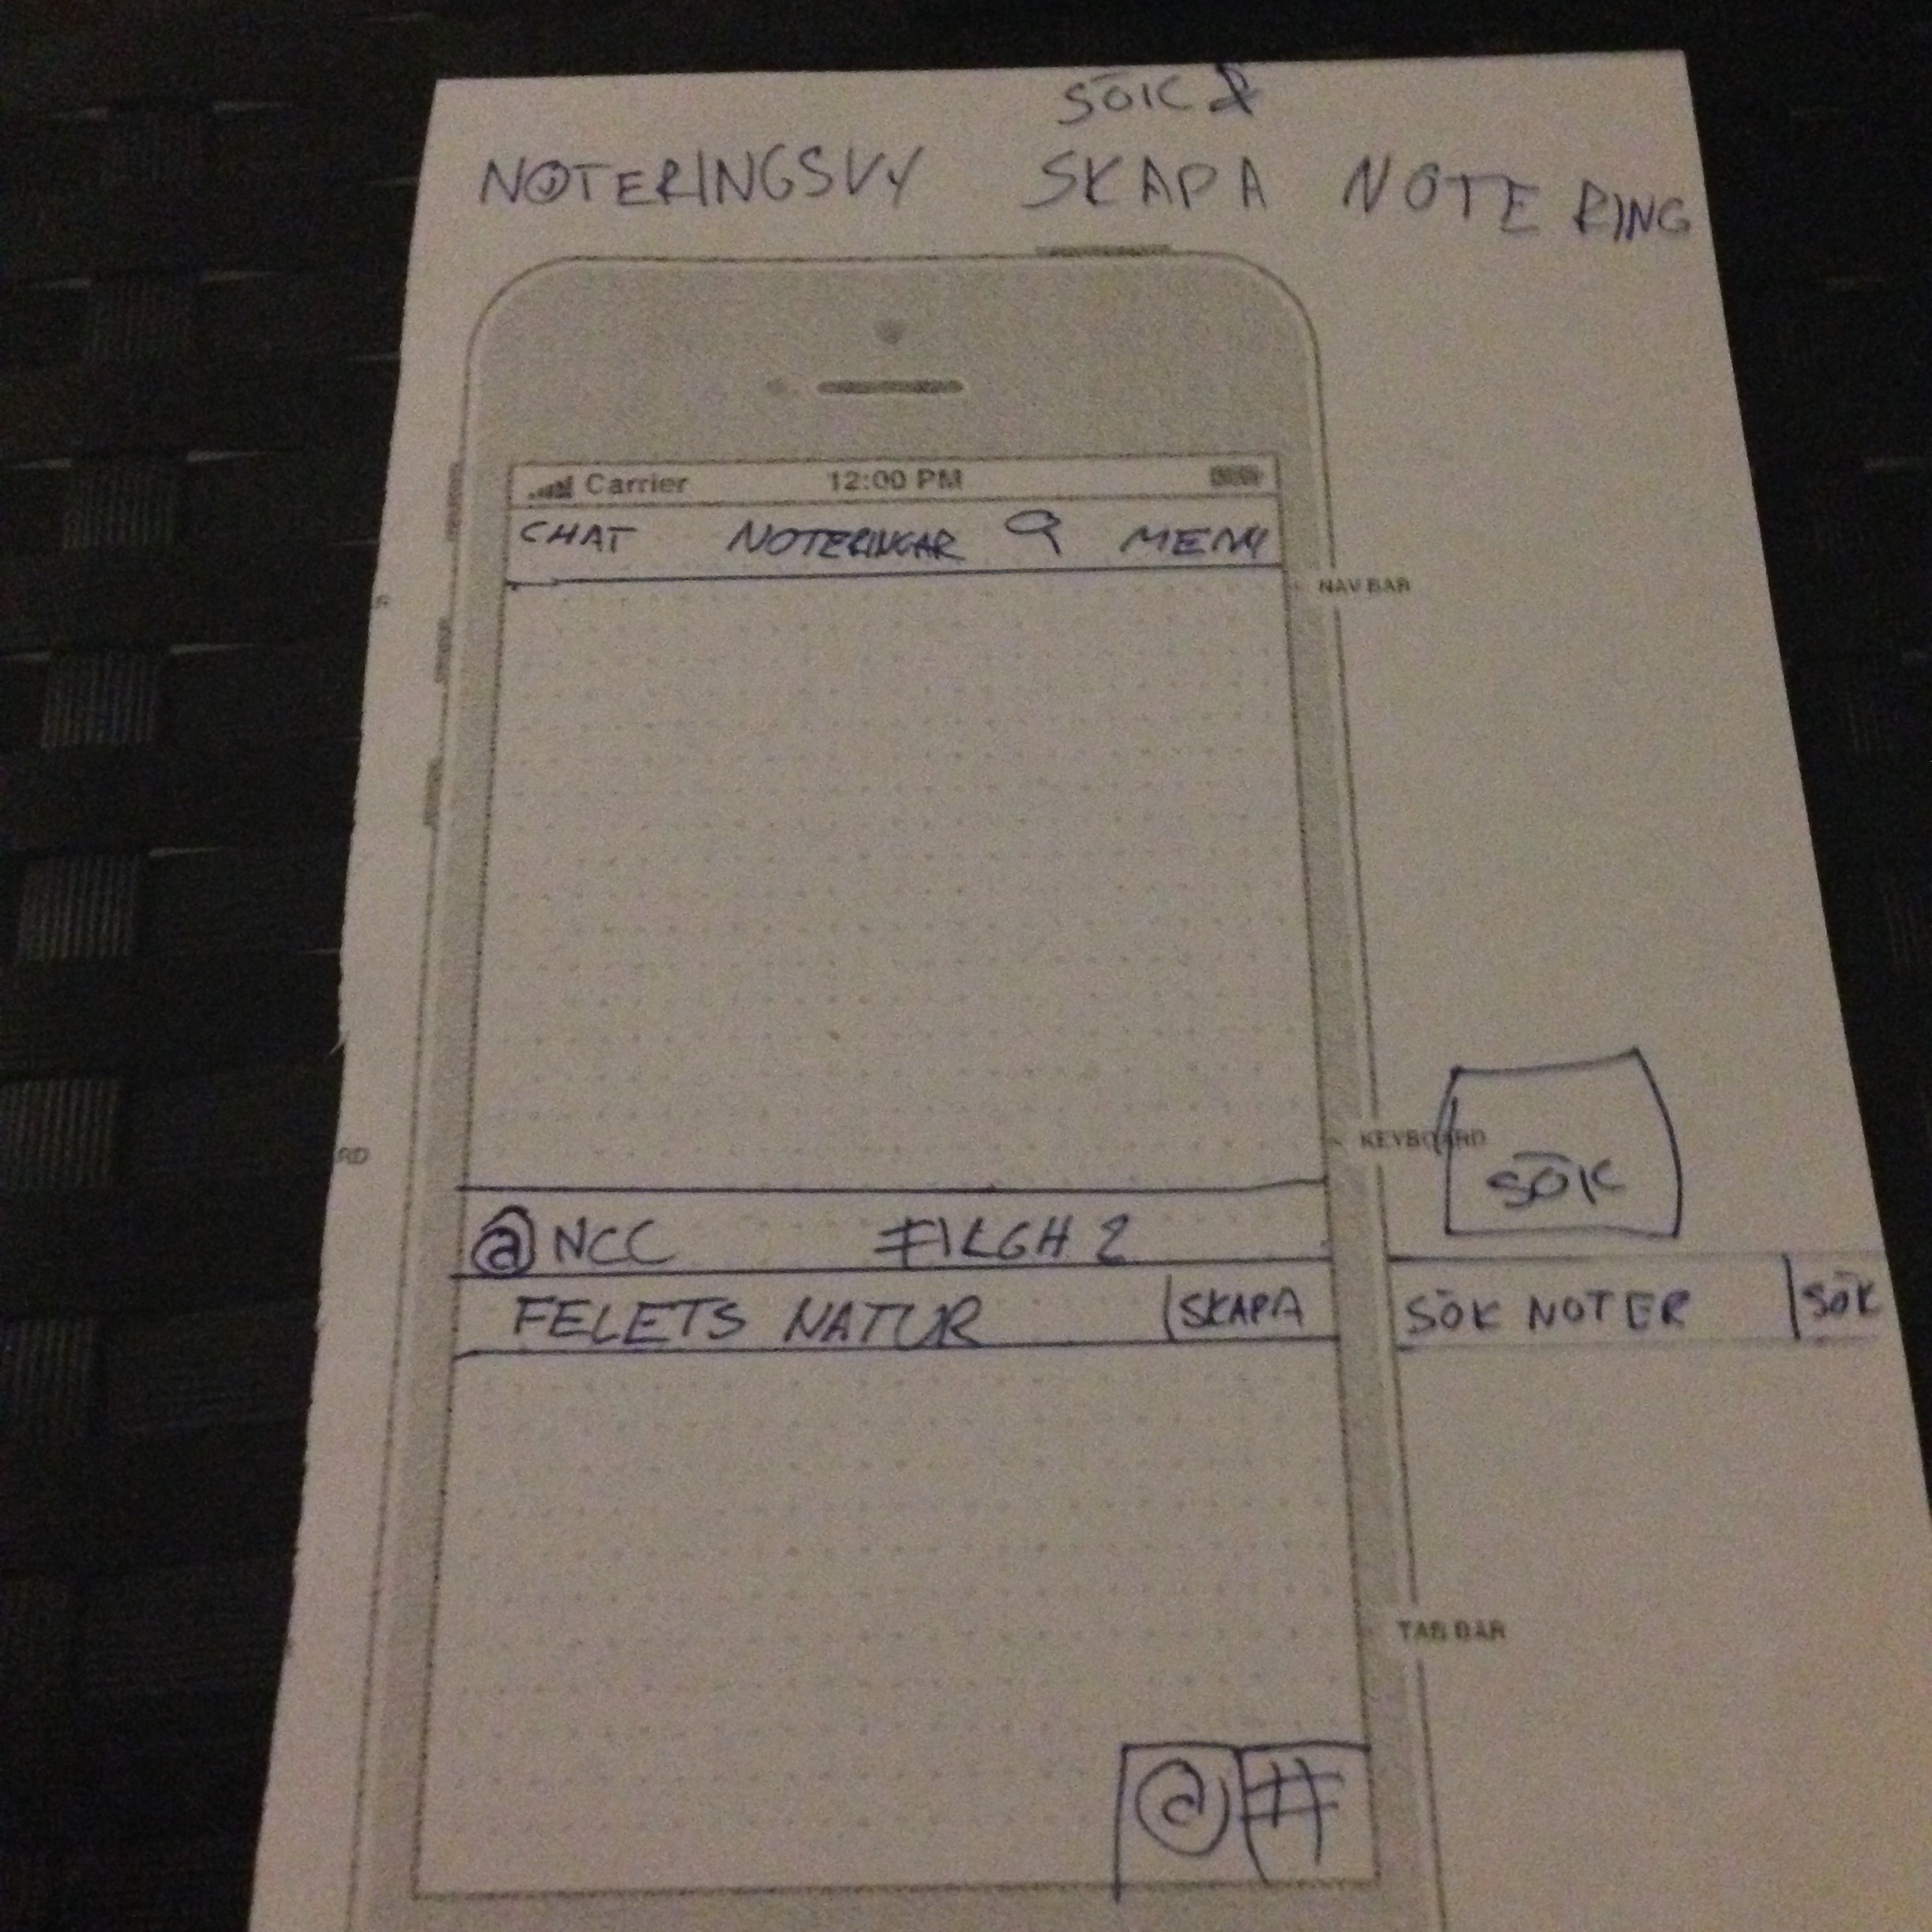 SÖK &
NOTERINGSVY SKAPA NOTERING
Carrier 12:00 PM
CHAT NOTERINGAR MENY
NAV BAR
KEYBOARD
RD
SÖK
@ NCC
FELETS NATUR |SKAPA
SÖK NOTER |SÖK
TAB BAR
@ #